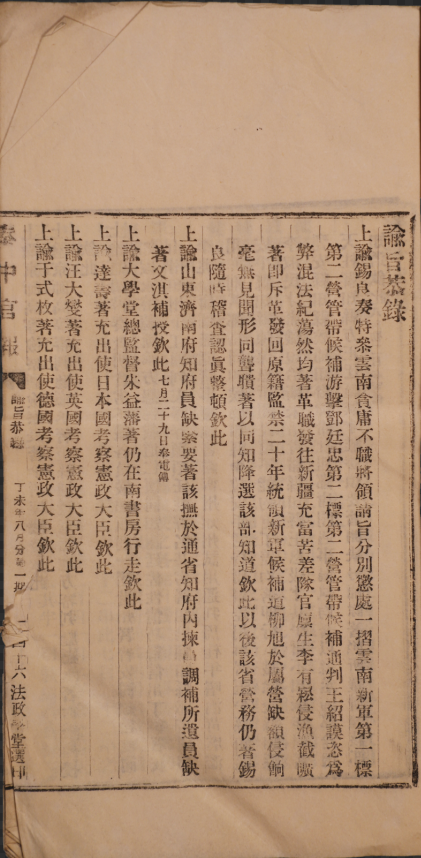 諭旨恭錄
上諭錫良奏特參雲南貪庸不職將領請旨分別懲處一摺雲南新軍第一標
第二營管帶候補游擊鄧廷思第二標第二營管帶候補通判王紹謨恣爲
弊混法紀蕩然均著革職發往新疆充當苦差隊官廩生李有崧侵漁截曠
著卽斥革發回原籍監禁二十年統領新軍候補道柳旭於屬營缺額侵餉
毫無見聞形同聾聵著以同知降選該部知道欽此以後該省營務仍著錫
良隨時稽查認眞整頓欽此
上諭山東濟南府知府員缺緊要著該撫於通省知府內揀員調補所遺員缺
著文淇補授欽此七月二十九日奉電傳
上諭大學堂總監督朱益藩著仍在南書房行走欽此
上諭達壽著充出使日本國考察憲政大臣欽此
上諭汪大燮著充出使英國考察憲政大臣欽此
上諭于式枚著充出使德國考察憲政大臣欽此
中官報 諭旨恭錄 丁未年八月分第一期 法政學堂選印